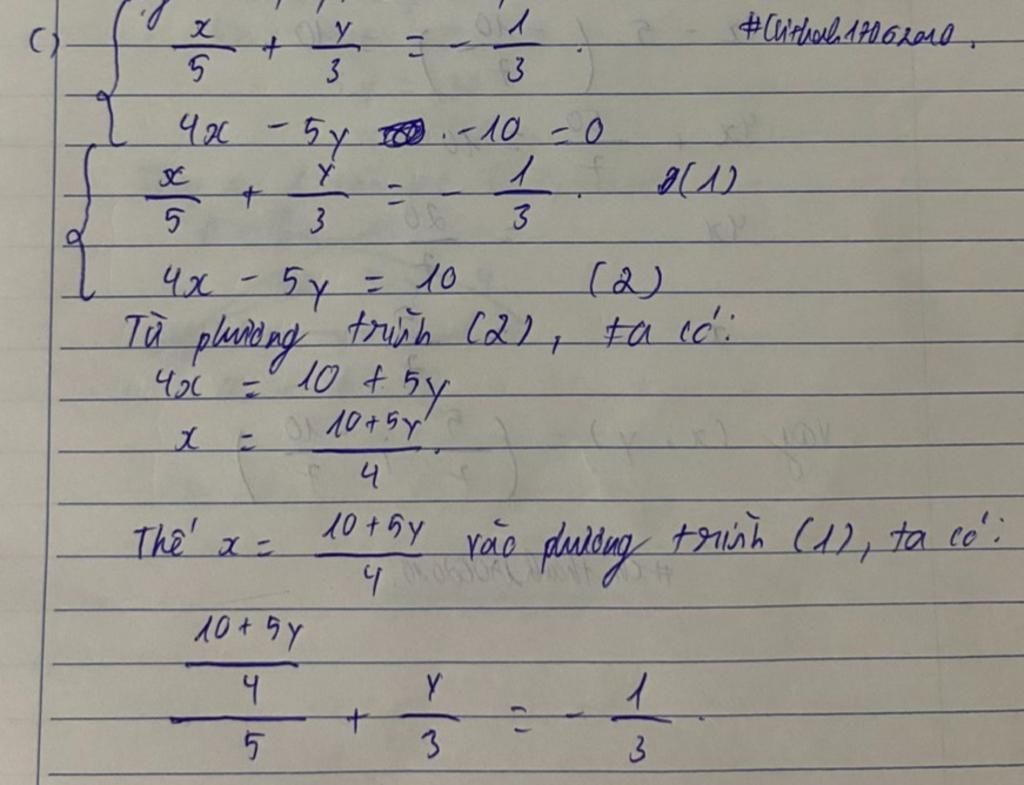 c) x/5 + y/3 = - 1/3 .
4x - 5y - 10 = 0
x/5 + y/3 = - 1/3 . (1)
4x - 5y = 10 (2)
Từ phương trình (2), ta có:
4x = 10 + 5y
x = (10+5y)/4 .
Thế x = (10+5y)/4 vào phương trình (1), ta có:
((10+5y)/4)/5 + y/3 = - 1/3 .